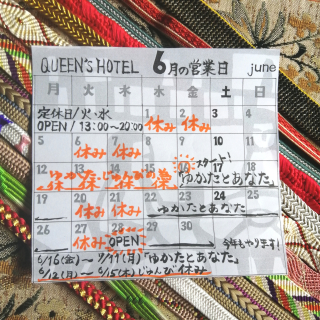 QUEEN'S HOTEL 6月の営業日 june
月 火 水 木 金 土 日
定休日/火・水
OPEN/13:00~20:00
1 休み 2 休み 3 4
5 6 休み 7 休み 8 9 10 11
スタート!
12 13 14 15 16 17 18
休み じゅんび休み 「ゆかたとあなた」
19 20 休み 21 休み 22 23 24 25
ゆかたとあなた
26 27 休み 28 OPEN 29 30
今年もやります!
6/16(金)~9/11(月)「ゆかたとあなた」
6/12(月)~6/15(木)じゅんび休み